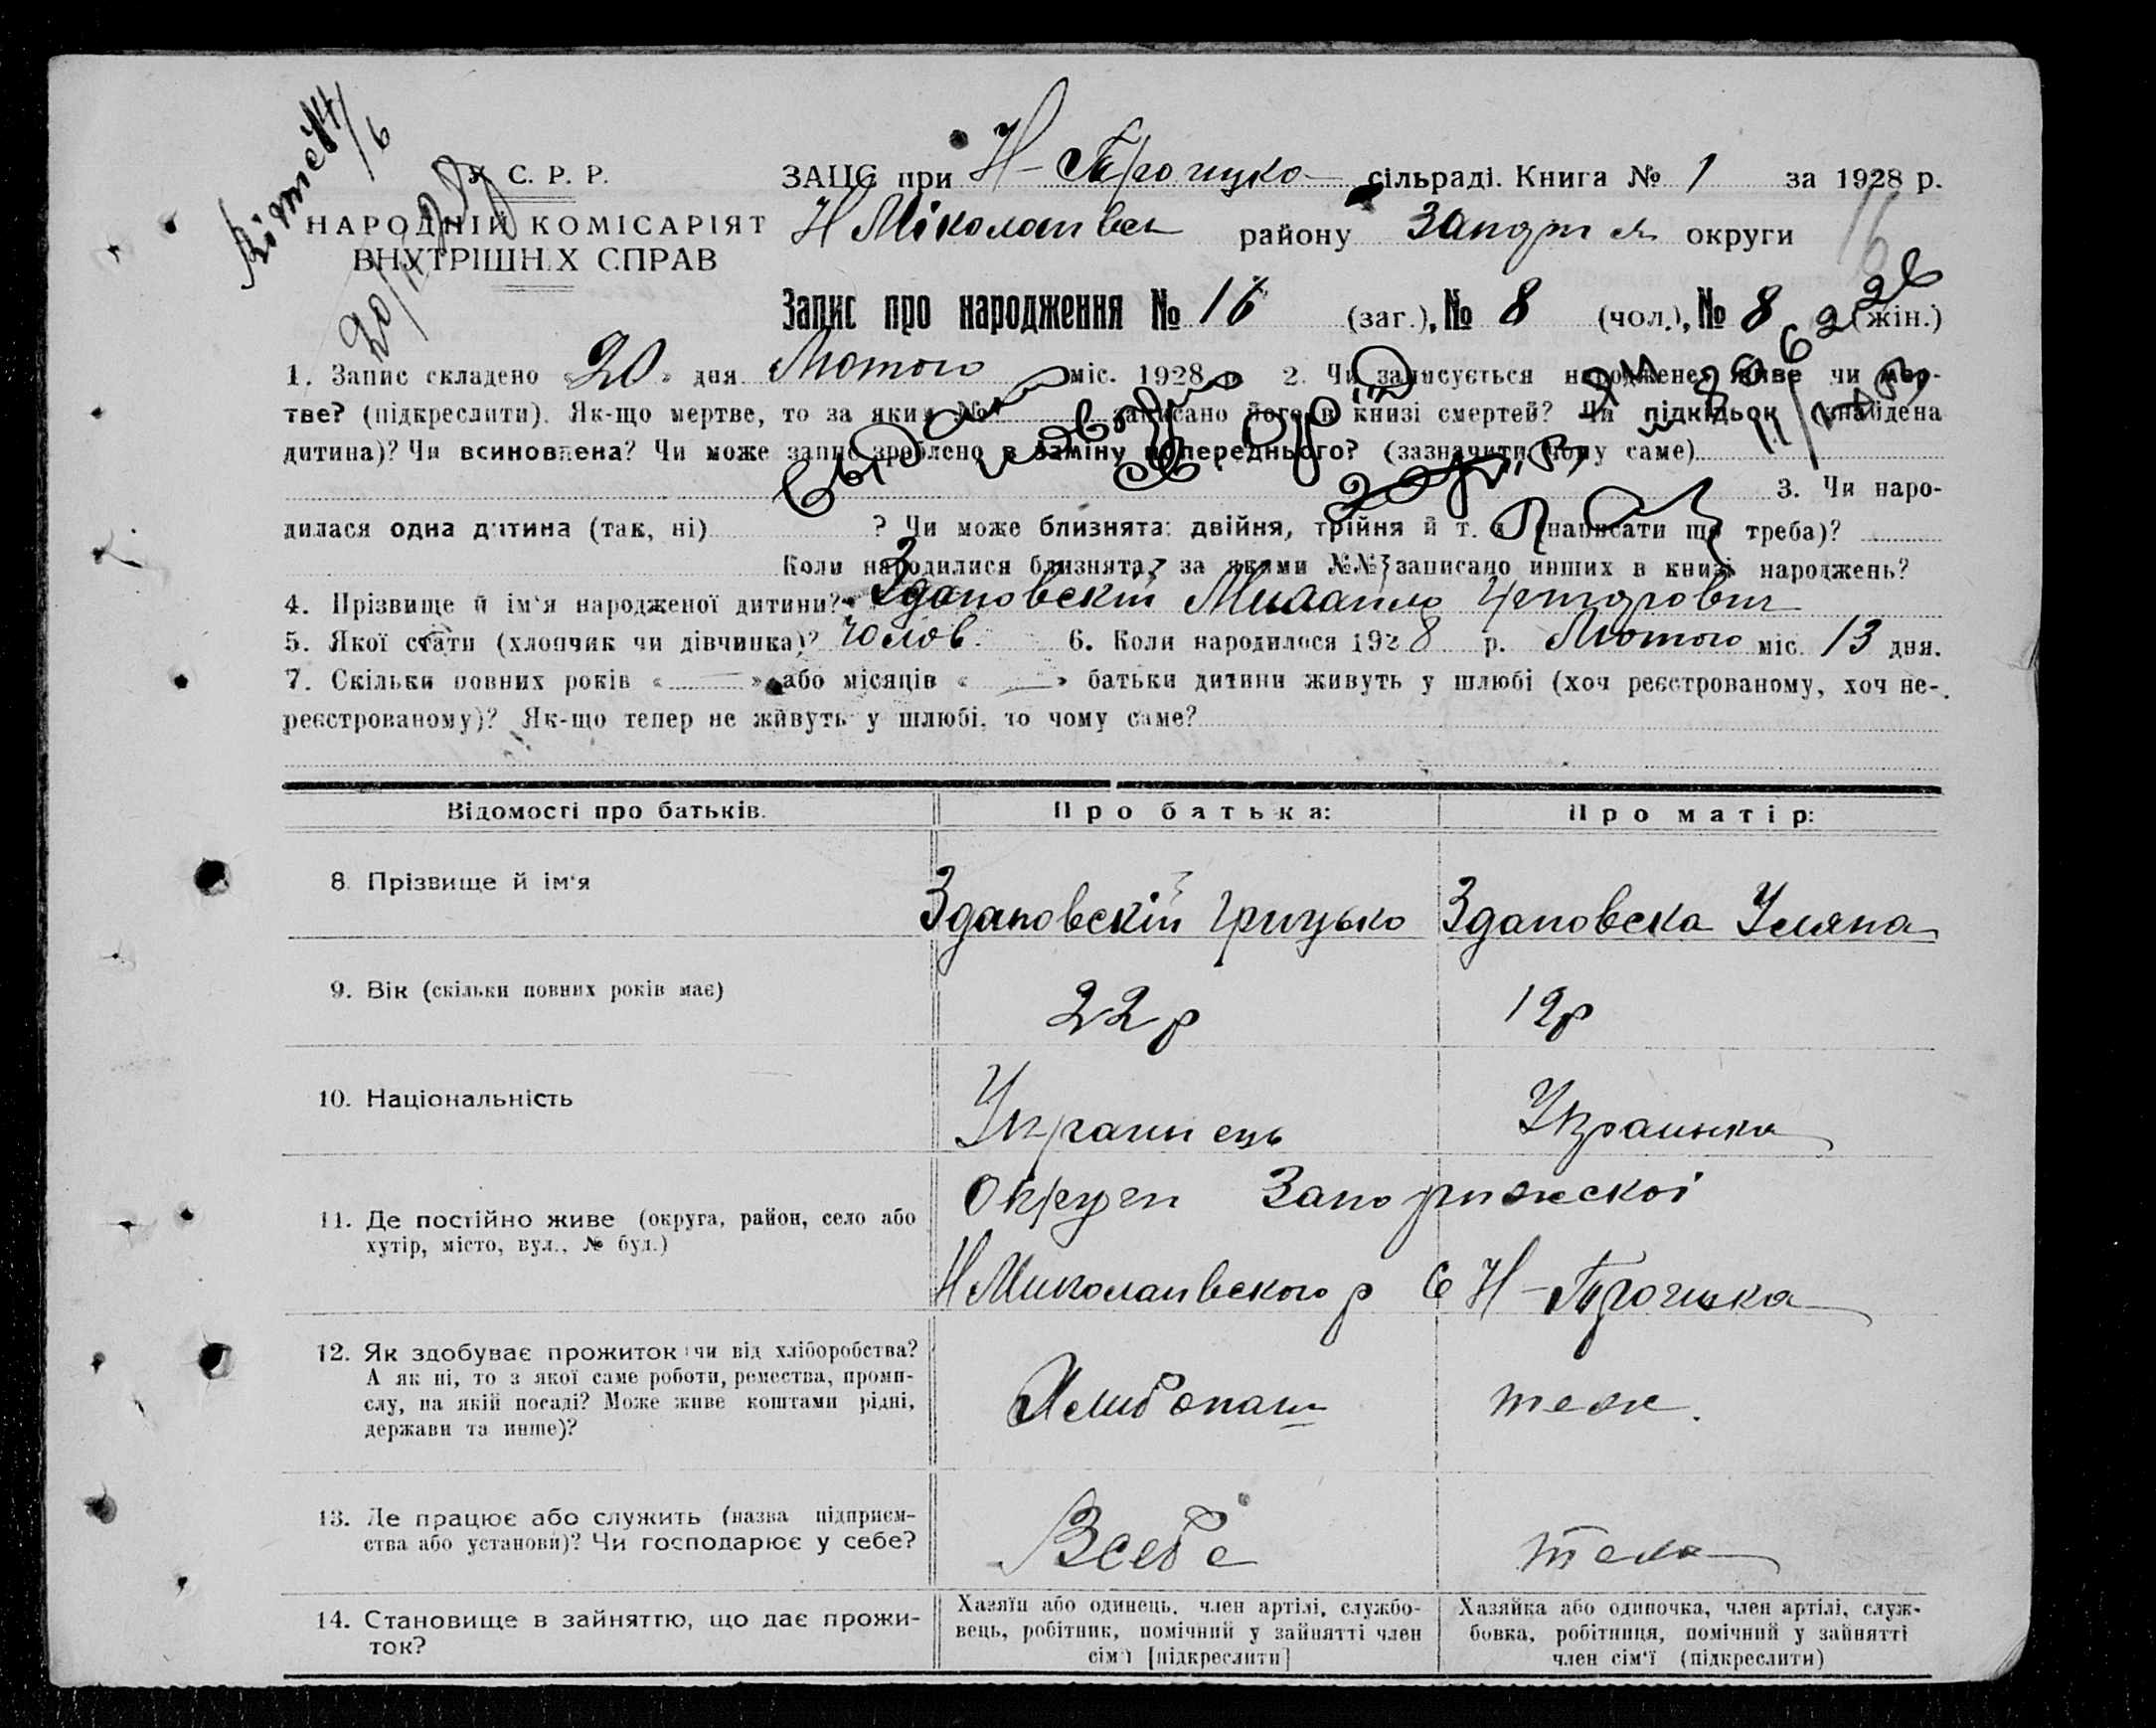 У. С. Р. Р.
НАРОДНІЙ КОМІСАРІЯТ
ВНУТРІШНІХ СПРАВ
20/
ЗАЦС при Н-Троицко сільраді. Книга № 1 за 1928 р.
Н Міколаивсь району Запор округи
16
Запис про народження № 16 (заг.), № 8 (чол.), № 8 (жін.)
1. Запис складено «20» дня Лютого міс. 1928 р. 2. Чи записується народжене: живе чи мер-
тве? (підкреслити). Як-що мертве, то за яким № записано його в книзі смертей? Чи підкідьок (знайдена
дитина)? Чи всиновлена? Чи може запис зроблено в заміну попереднього? (зазначити чому саме)
3. Чи наро-
дилася одна дитина (так, ні) ? Чи може близнята: двійня, трійня й т. (написати що треба)?
Коли народилися близнята, за якими №№ записано инших в книзі народжень?
4. Прізвище й ім'я народженої дитини? Здановскій Михаило
5. Якої стати (хлопчик чи дівчинка)? Чолов. 6. Коли народилося 1928 р. Лютого міс. 13 дня.
7. Скільки повних років « — » або місяців « — » батьки дитини живуть у шлюбі (хоч реєстрованому, хоч не-
реєстрованому)? Як-що тепер не живуть у шлюбі, то чому саме?
Відомості про батьків. Про батька: Про матір:
8. Прізвище й ім'я Здановскій Грицько Здановска Уляна
9. Вік (скільки повних років має) 22 р 12р
10. Національність Украинець Украинка
Округи Запорижскоі
11. Де постійно живе (округа, район, село або
хутір, місто, вул., № буд.)
Н Миколаивского р С Н-Троицка
12. Як здобуває прожиток: чи від хліборобства?
А як ні, то з якої саме роботи, ремества, проми-
слу, на якій посаді? Може живе коштами рідні,
держави та инше)?
Хлибопаш теж.
13. Де працює або служить (назва підприєм-
ства або установи)? Чи господарює у себе?
Всебе теж
14. Становище в зайняттю, що дає прожи-
ток?
Хазяїн або одинець, член артілі, службо-
вець, робітник, помічний у зайнятті член
сім'ї [підкреслити]
Хазяйка або одиночка, член артілі, служ-
бовка, робітниця, помічний у зайнятті
член сім'ї (підкреслити)